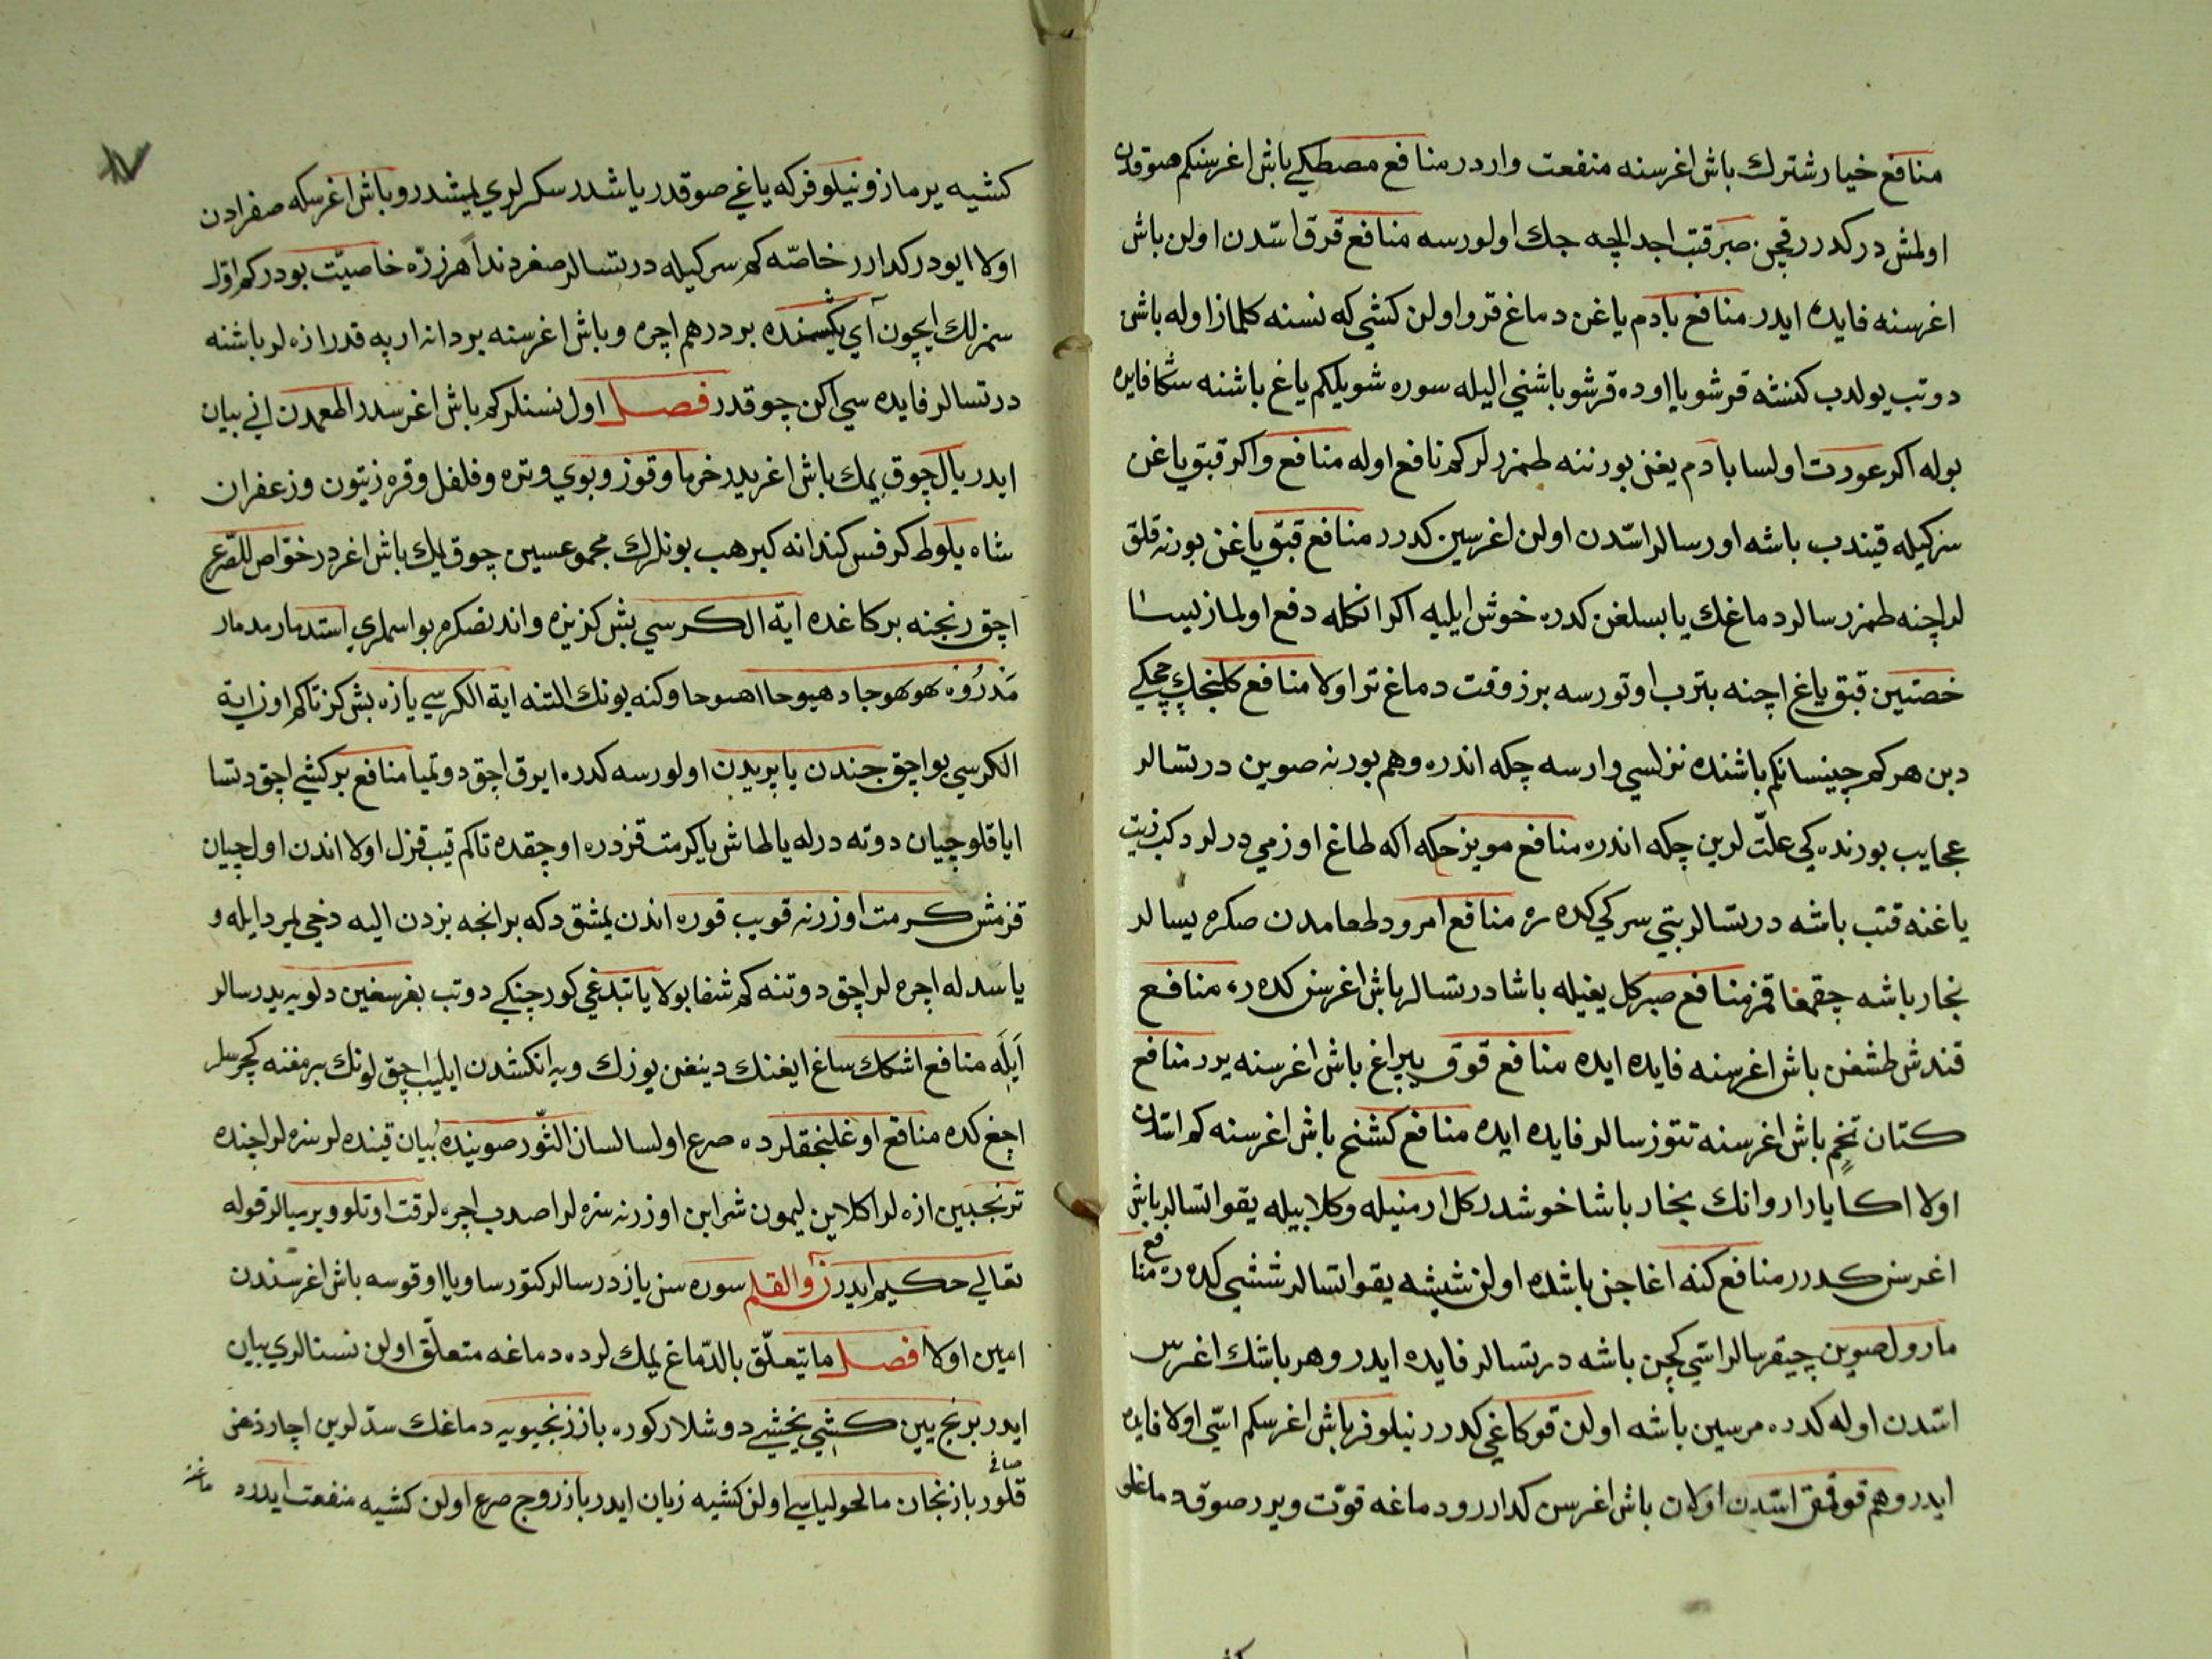 منافع خیار شنترك باش اغرسنه منفعت واردر منافع مصطکی باش اغرسنکم صوقدن
اولمش در کدرر قچن صبر قتب اجدالچه جك اولورسه منافع قرق اسّدن اولن باش
اغرسنه فایده ایدر منافع بادم یاغن دماغ قرو اولن کشی که نسنه کلماز اوله باش
دوتب یولدب کنشه قرشو یا اوده قرشو باشنی الیله سوره شویلکم یاغ باشنه شکا فایده
بوله اکر عورت اولسا بادم یغن بورننه طمزرلر کم نافع اوله منافع و اکر قبق یاغن
سرکیله قیندب باشه اورسالر اسّدن اولن اغرسین کدرر منافع قبق یاغن بورنه قلق
لر اچنه طمزرسالر دماغك یابسلغن کدره خوش ایلیه اکر انکله دفع اولماز
خصتیین قبق یاغ اچنه بترب اوتورسه برز وقت دماغ تر اولا منافع کلنجك چچکی
دبن هرکم چینسا انکم باشنده نزلسی وارسه چکه اندره وهم بورنه صوین درتسالر
عجایب بورنده کی علّت لرین چکه اندره منافع مویزجکه اکه طاغ اوزمی درلر دکب زیت
یاغنه قتب باشه درتسالر بتی سرکی کده ره منافع امرود طعامدن صکره یسالر
بخار باشه چقمغا قمز منافع صبر کل یغیله باشا درتسالر باش اغرسن کده ره منافع
قندش طشغن باش اغرسنه فایده ایده منافع قوق یپراغ باش اغرسنه یرر منافع
کتان تخم باش اغرسنه تتوزسالر فایده ایده منافع کشنج باش اغرسنه کم استدن
اولا اکا یارار وانك بخار باشا خوشدر کل ارمنیله وکلابیله یقو اتسالر باش
اغرسن کدرر منافع کنه اغاجن باشده اولن ششه یقو اتسالر ششی کده ره منافع
مارول صوین چیقرسالر اسّی کچن باشه درتسالر فایده ایدر وهر باشك اغرس
اسّدن اوله کدره مرسین باشه اولن قوکاغی کدرر نیلوفر باش اغرسکم اسّی اولا فایده
ایدر وهم قوقمق اسّدن اولان باش اغرسن کدارر ودماغه قوّت ویرر صوق دماغلو
کشیه یرماز ونیلوفرکه یاغی صوقدر یاشدر سکرلری یمشدر وباش اغرسکه صفرادن
اولا ایودر کدارر خاصّه کم سرکیله درتسالر صغردندا هرزره خاصیّت بودر کم اوّل
سمزلك ایچون آی یکیسنده بر درهم اچره وباش اغرسنه بر دانه ارپه قدر ازه لر باشنه
درتسالر فایده سی اکن چوقدر فصل اول نسنلر کم باش اغرسدر اطعمدن انی بیان
ایدر بال چوق یمك باش اغریدر خرما وقوز وبوی وتره وفلفل وقره زیتون وزعفران
شاه بلوط کرفس کندانه کبر هب بونلرك مجموعسین چوق یمك باش اغردر خوّاص للصرع
اچق رنجنه بر کاغده ایة الکرسی بش کز یزه واندنصکره بو اسملری استدمار مدمار
مَذرُوْه هوهوجا دهیوحا اهسوحا وکنه بونك التنه ایة الکرسی یازه بش کز تاکم اوز ایة
الکرسی بو اچق جندن یا پریدن اولورسه کدره ایرق اچق دوتمیا منافع بر کشی اچق دتسا
ایاقلو چیان دوته درله یا طاش یا کرمت قزدره اوچقده تاکم قپ قزل اولا اندن اول چیان
قزمش کرمت اوزرنه قویب قوره اندن یمشق دکه بر انجه بزدن الیه دخی لیردایله و
یا سدله اچره لر اچق دوتنه کم شفا بولا یا تبدغی کورچنکی دوتب بغرسغین دلو یه یدرسالر
اَیله منافع اشکك ساغ ایغنك دینغن یوزك ویه انکشدن ایلیب اچق لونك برمغنه کچرسلر
اچغ کده منافع اوغلنجقلرده صرع اولسا لسان الثّور صوینده بُیان قینده لر سزه لر اچنده
ترنجبین ازه لر اکلاین لیمون شرابن اوزرنه سزه لر اصدب اچره لر قت اوتلو ویرسالر قوله
تعالی حکیم ایدر ن والقلم سوره سن یازدرسالر کتورسا ویا اوقوسه باش اغرسندن
امین اولا فصل ما یتعلّق بالدّماغ یمك لرده دماغه متعلّق اولن نسنالری بیان
ایدر برنج یین کشی یخشی دوشلار کوره بازنجیویه دماغك سدّلرین اچار ذهن صافی
قلور بازنجان مالحولیایی اولن کشیه زیان ایدر بازروج صرع اولن کشیه منفعت ایدر دماغنه